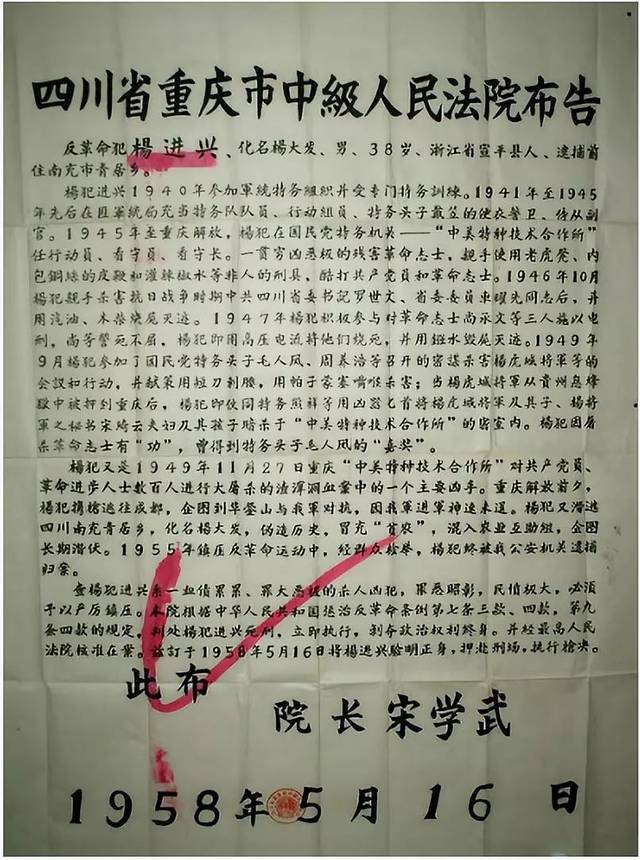 四川省重庆市中級人民法院布告
反革命犯楊进兴、化名楊大发、男、38岁、浙江省宣平县人、逮捕前
住南充市青居乡。
楊犯进兴1940年参加軍統特务組织并受专门特务訓練。1941年至1945
年先后在匪軍統局充当特务队队員、行动組員、特务头子戴笠的便衣警卫、侍从副
官。1945年至重庆解放，楊犯在国民党特务机关——“中美特种技术合作所”
任行动員、看守員、看守长。一貫穷凶恶极的残害革命志士，親手使用老虎凳、内
包鋼絲的皮鞭和灌辣椒水等非人的刑具，酷打共产党員和革命志士。1946年10月
楊犯親手杀害抗日战争时期中共四川省委书記罗世文、省委委員車耀先同志后，并
用汽油、木柴焚尸灭迹。1947年楊犯积极参与对革命志士尚承文等三人施以电
刑，尚等誓死不屈，楊犯即用高压电流将他们烧死，并用鏹水毁尸灭迹。1949年
9月楊犯参加了国民党特务头子毛人凤、周养浩等召开的密謀杀害楊虎城将軍等的
会议和行动，并献策用短刀刺腰，用帕子蒙塞嘴喉杀害；当楊虎城将軍从貴州息烽
獄中被押到重庆后，楊犯即伙同特务熊祥等用凶器匕首将楊虎城将軍及其子、楊将
軍之秘书宋綺云夫妇及其孩子暗杀于“中美特种技术合作所”的密室内。楊犯因屠
杀革命志士有“功”，曾得到特务头子毛人凤的“嘉奖”。
楊犯又是1949年11月27日重庆“中美特种技术合作所”对共产党員、
革命进步人士数百人进行大屠杀的渣滓洞血案中的一个主要凶手。重庆解放前夕，
楊犯携槍逃往成都，企图到华蓥山与我軍对抗，因我軍进軍神速未遂。楊犯又潜逃
四川南充青居乡，化名楊大发，伪造历史，冒充“貧农”，混入农业互助組，企图
长期潜伏。1955年鎮压反革命运动中，经群众檢举，楊犯終被我公安机关逮捕
归案。
查楊犯进兴系一血债累累、罪大恶极的杀人凶犯，罪恶昭彰，民憤极大，必須
予以严厉鎮压。本院根据中华人民共和国惩治反革命条例第七条三款、四款，第九
条四款的规定，判处楊犯进兴死刑，立即执行，剥夺政治权利終身。并经最高人民
法院核准在案。兹訂于1958年5月16日将楊进兴驗明正身，押赴刑場，执行槍决。
此布
院长宋学武
1958年5月16日